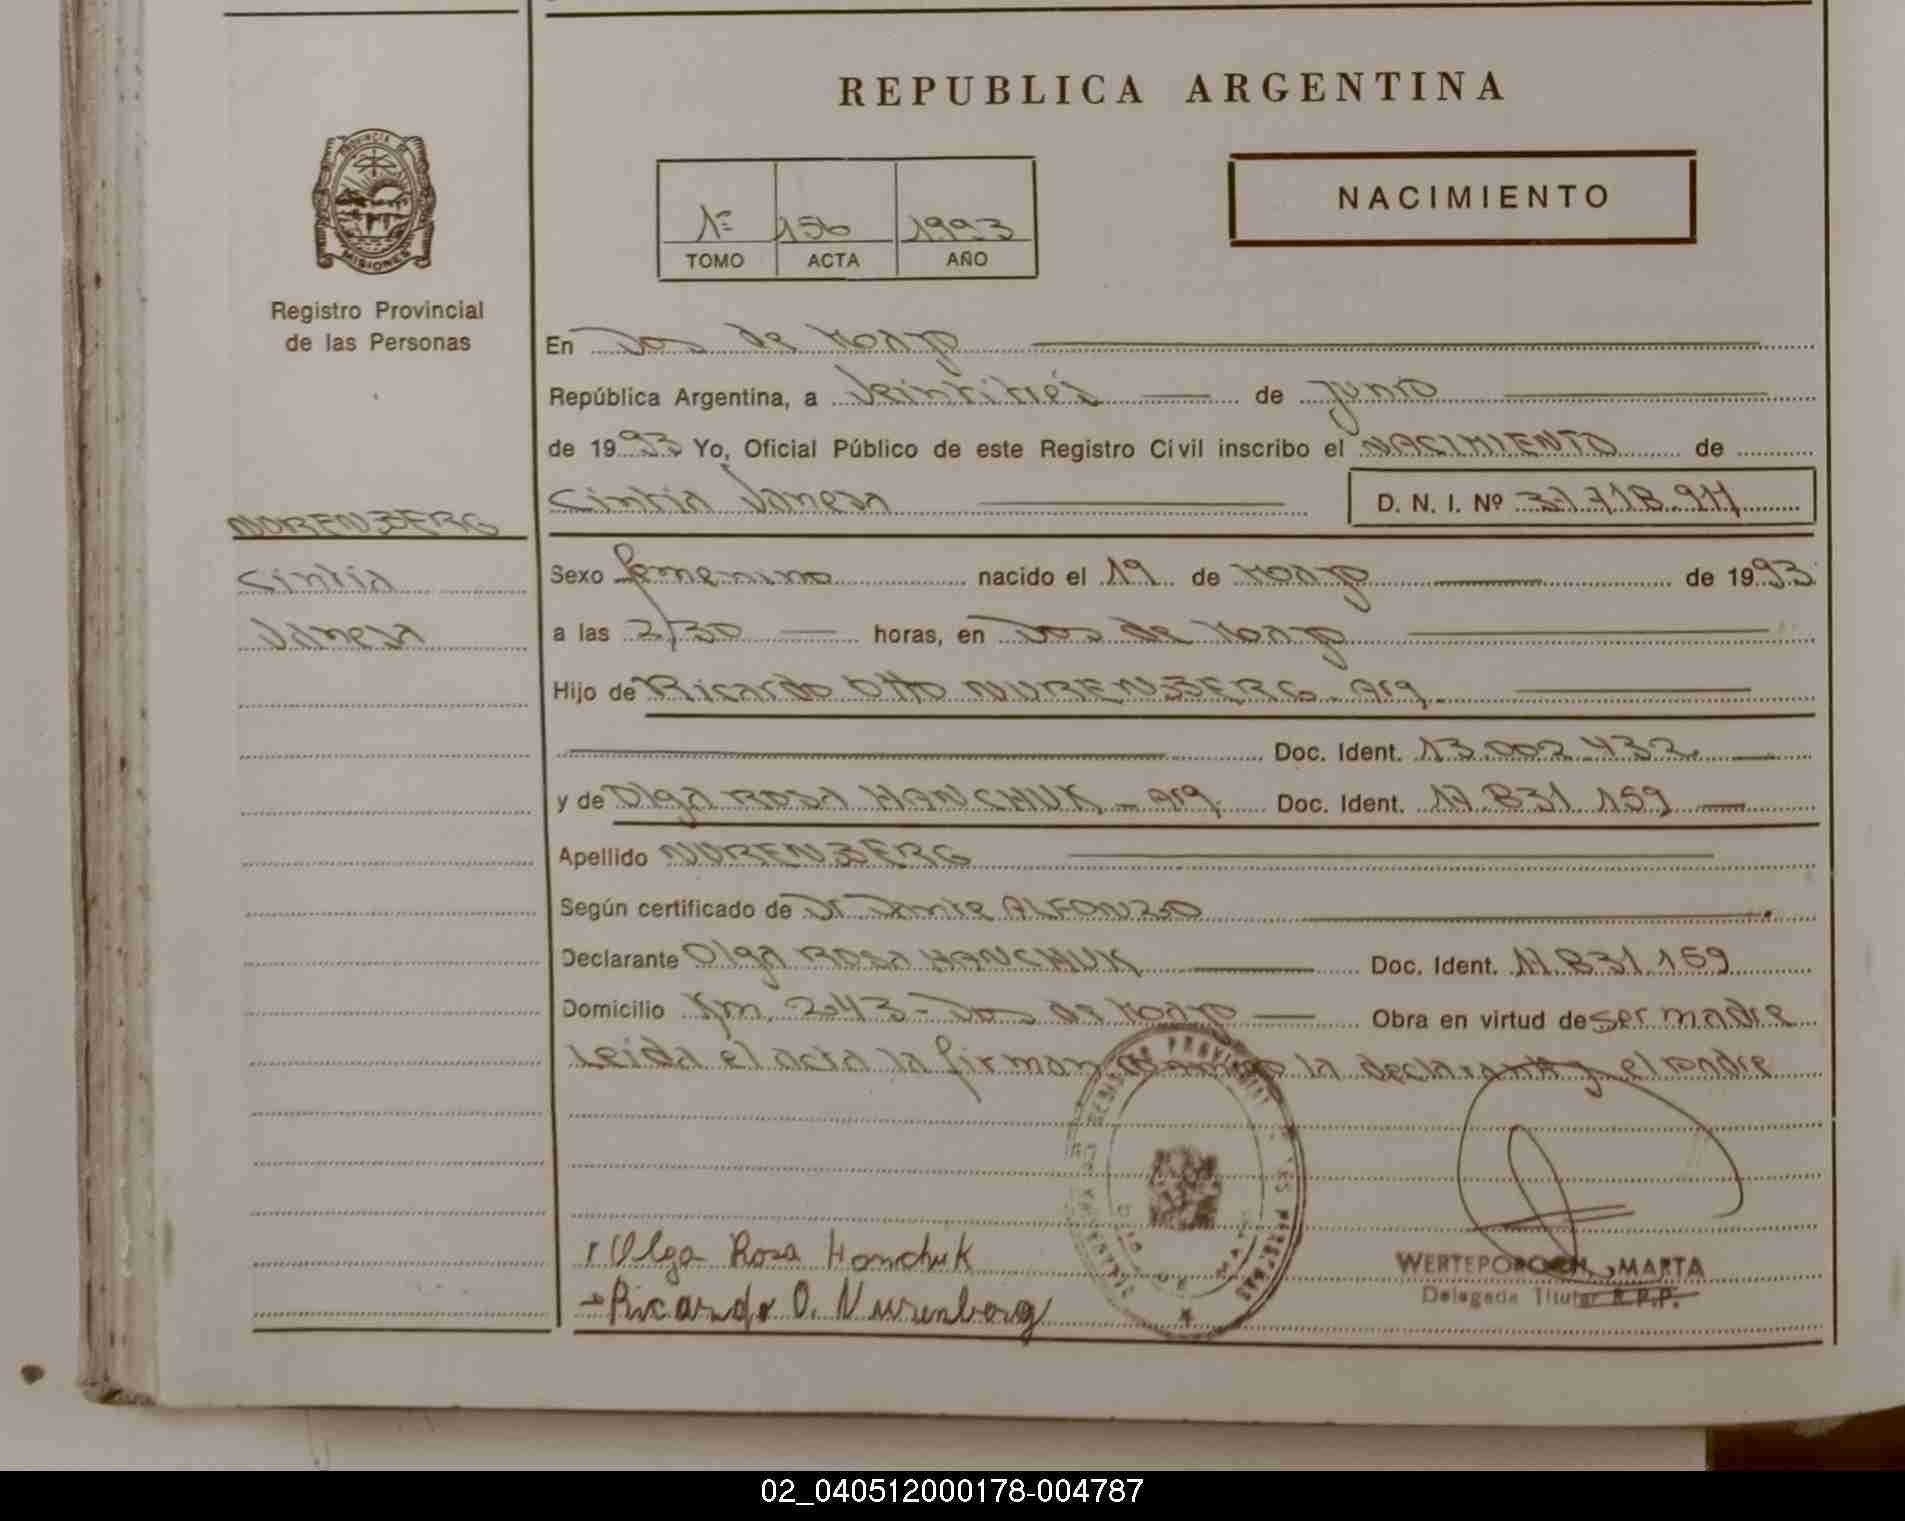 REPUBLICA ARGENTINA
PROVINCIA DE
MISIONES
Registro Provincial
de las Personas
1º 156 1993
TOMO ACTA AÑO
NACIMIENTO
En Dos de Mayo
República Argentina, a Veintitrés de junio
de 1993 Yo, Oficial Público de este Registro Civil inscribo el NACIMIENTO de
Cintia Vanesa D. N. I. Nº
NURENBERG
Cintia
Vanesa
Sexo femenino nacido el 19 de Mayo de 1993
a las 2/30 horas, en Dos de Mayo
Hijo de Ricardo Otto NURENBERG - Arg.
Doc. Ident. 13.002.432.
y de Olga ROSA HANCHUK - Arg. Doc. Ident. 17.831.159
Apellido NURENBERG
Según certificado de Dr Dante ALFONZO
Declarante Olga ROSA HANCHUK Doc. Ident. 17.831.159
Domicilio Km. 243 - Dos de Mayo Obra en virtud de ser madre
Leida el acta la firman la declarante y el padre
Olga Rosa Hanchuk
Ricardo O. Nurenberg
MARTA
Delegada Titular R.P.P.
02_040512000178-004787